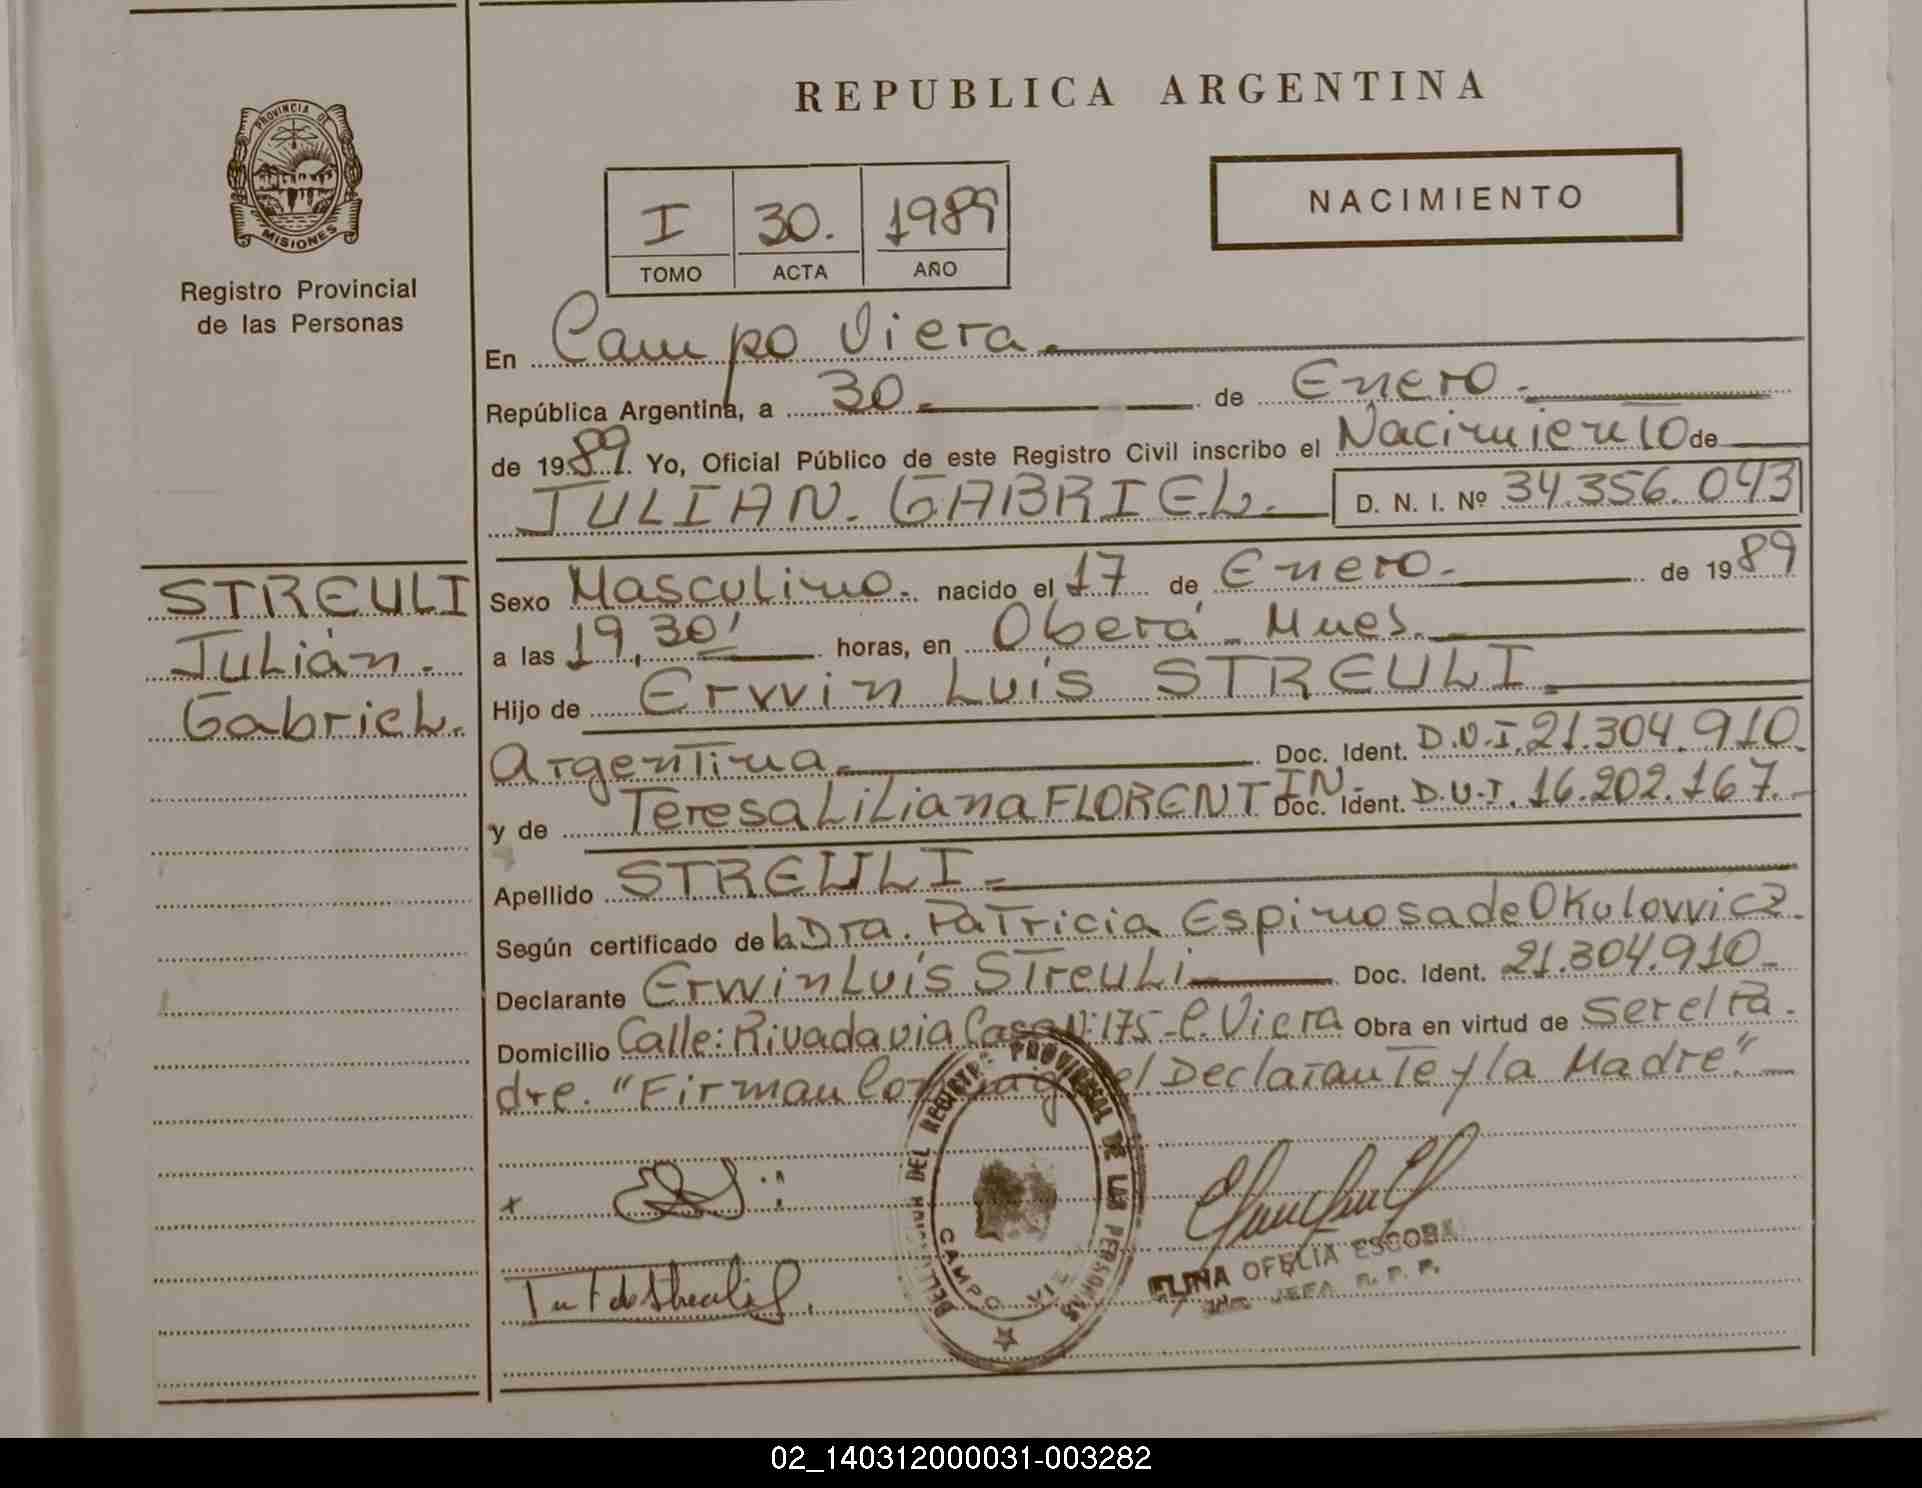 REPUBLICA ARGENTINA
PROVINCIA DE
MISIONES
Registro Provincial
de las Personas
I 30. 1989
TOMO ACTA AÑO
NACIMIENTO
En Campo Viera.
República Argentina, a 30 de Enero.
de 1989. Yo, Oficial Público de este Registro Civil inscribo el Nacimiento de
JULIAN. GABRIEL. D. N. I. Nº 34.356.043
STREULI
Julián.
Gabriel.
Sexo Masculino. nacido el 17 de Enero. de 1989
a las 19,30' horas, en Oberá - Mnes.
Hijo de Ervvin Luís STREULI
Argentina. Doc. Ident. D.N.I. 21.304.910
y de Teresa Liliana FLORENTIN. Doc. Ident. D.N.I. 16.202.167.
Apellido STREULI.
Según certificado de la Dra. Patricia Espinosa de Okulovvicz.
Declarante Ervvin Luís Streuli Doc. Ident. 21.304.910
Domicilio Calle: Rivadavia Casa Nº: 175 - C. Viera Obra en virtud de ser el Pa-
dre. "Firman Conmigo el Declarante y la Madre".
DEL REGISTRO PROVINCIAL DE LAS PERSONAS
CAMPO
ELINA OFELIA ESCOBA
JEFA R. P. P.
02_140312000031-003282